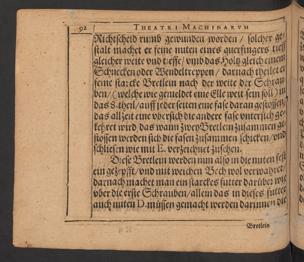 92 THEATRI MACHINARVM
Richtscheid rumb gewunden worden / solcher ge-
stalt machet er seine nuten eines querfingers tieff
gleicher weite vnd tieffe / vnd das Holtz gleich einem
Schnecken oder Wendeltreppen / darnach theilet er
seine starcke Bretlein nach der weite der Schrau-
ben / (welche wie gemeldet eine Elle weit seyn soll) in
das 8. theil / auff jeder seiten eine fase daran gestossen /
das allzeit eine vbersich die andere vnter sich ge-
kehret wird das wann zwey Bretlein zusammen ge-
stossen werden sich die fasen zusammen schicken / vnd
schliessen wie mit E. verzeichnet zusehen.
Diese Bretlein werden nun also in die nuten fest
ein gezapfft / vnd mit weichen Bech wol verwahret /
darnach machet man ein starckes futter darüber wie
vber die erste Schrauben / allein das in dieses futter
auch nuten D. müssen gemacht werden darinnen die
Bretlein